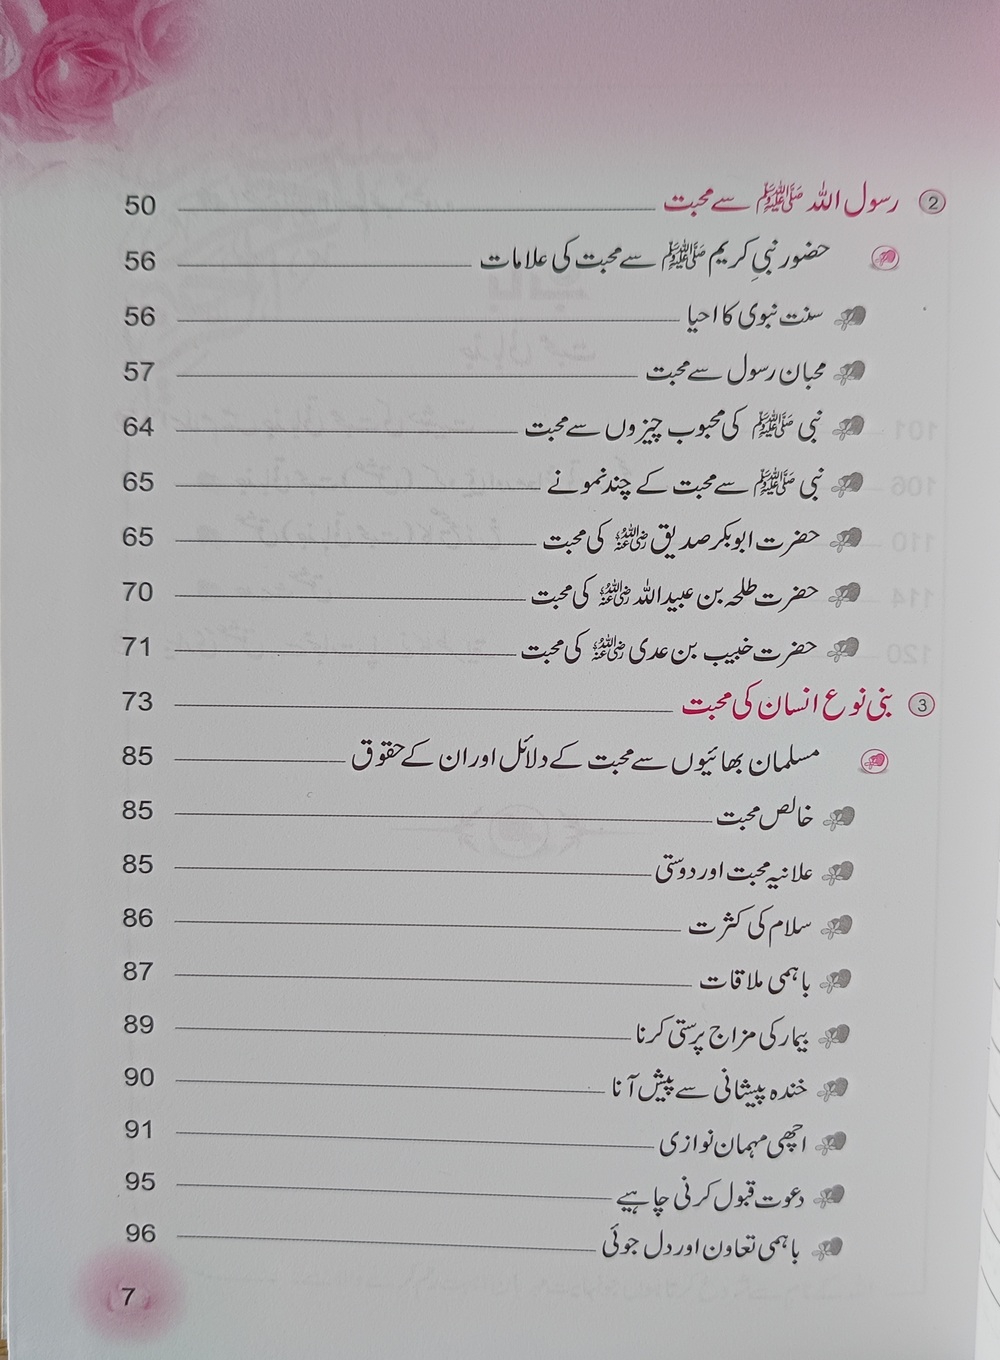 ② رسول اللہ ﷺ سے محبت 50
حضور نبیِ کریم ﷺ سے محبت کی علامات 56
سنت نبوی کا احیا 56
محبان رسول سے محبت 57
نبی ﷺ کی محبوب چیزوں سے محبت 64
نبی ﷺ سے محبت کے چند نمونے 65
حضرت ابوبکر صدیق رضی اللہ عنہ کی محبت 65
حضرت طلحہ بن عبیداللہ رضی اللہ عنہ کی محبت 70
حضرت خبیب بن عدی رضی اللہ عنہ کی محبت 71
③ بنی نوع انسان کی محبت 73
مسلمان بھائیوں سے محبت کے دلائل اور ان کے حقوق 85
خالص محبت 85
علانیہ محبت اور دوستی 85
سلام کی کثرت 86
باہمی ملاقات 87
بیمار کی مزاج پرستی کرنا 89
خندہ پیشانی سے پیش آنا 90
اچھی مہمان نوازی 91
دعوت قبول کرنی چاہیے 95
باہمی تعاون اور دل جوئی 96
7